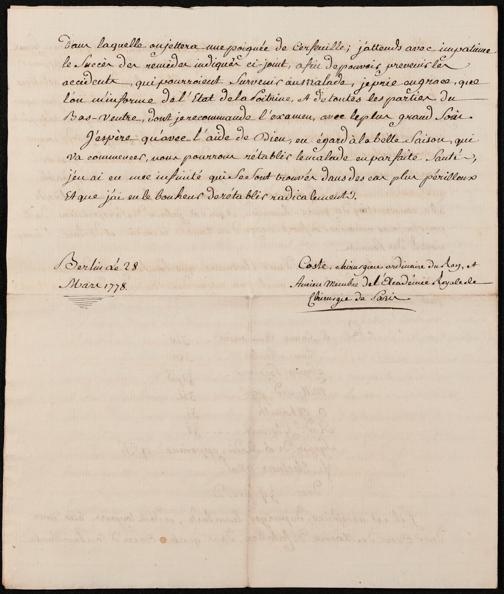 Dans laquelle on jettera une poignée de Cerfeuille; j'attends avec impatience
le Succès des remèdes indiqués ci-joint, afin de pouvoir prevenir les
accidents, qui pourroient Survenir au malade, je prie en grace, que
l'on m'informe de l'Etat de la Poitrine, et de toutes les parties du
Bas-Ventre, dont je recommande l'examen, avec le plus grand Soin.
J'espère qu'avec l'aide de Dieu, eu égard à la belle Saison, qui
va commencer, nous pourrons rétablir le malade en parfaite Santé,
j'en ai eu une infinité qui se sont trouvés dans des cas plus périlleux
Et que j'ai eu le bonheur de rétablir radicalement.
Berlin ce 28
Mars 1778.
Coste, chirurgien ordinaire du Roy, et
Ancien Membre de l'Académie Royale de
Chirurgie de Paris